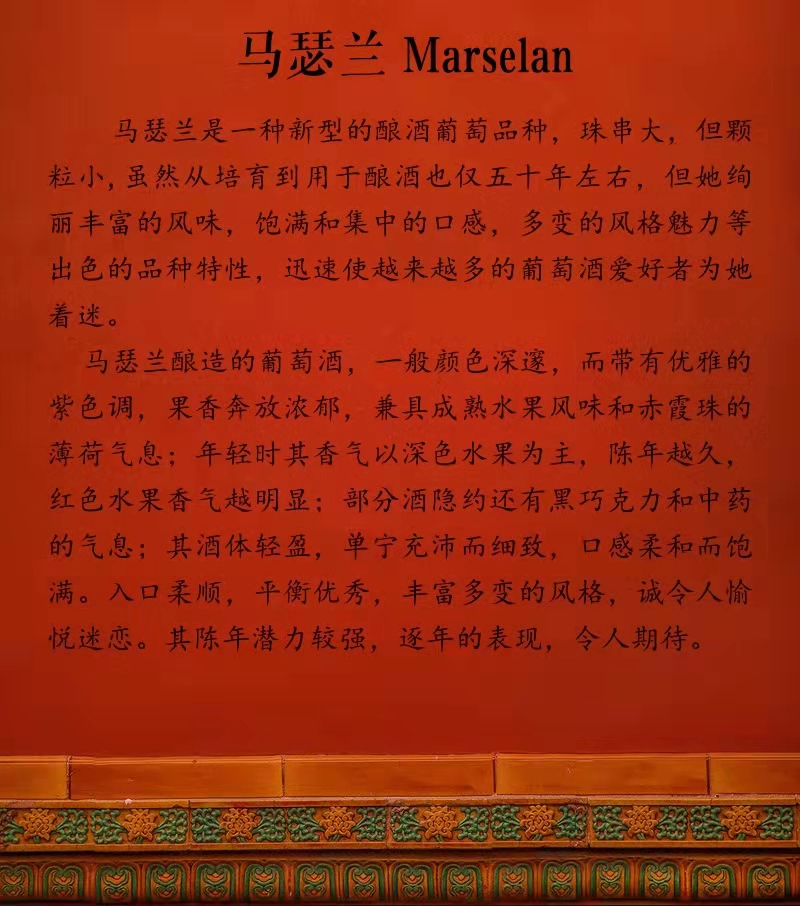 马瑟兰 Marselan
马瑟兰是一种新型的酿酒葡萄品种，珠串大，但颗
粒小,虽然从培育到用于酿酒也仅五十年左右，但她绚
丽丰富的风味，饱满和集中的口感，多变的风格魅力等
出色的品种特性，迅速使越来越多的葡萄酒爱好者为她
着迷。
马瑟兰酿造的葡萄酒，一般颜色深邃，而带有优雅的
紫色调，果香奔放浓郁，兼具成熟水果风味和赤霞珠的
薄荷气息；年轻时其香气以深色水果为主，陈年越久，
红色水果香气越明显；部分酒隐约还有黑巧克力和中药
的气息；其酒体轻盈，单宁充沛而细致，口感柔和而饱
满。入口柔顺，平衡优秀，丰富多变的风格，诚令人愉
悦迷恋。其陈年潜力较强，逐年的表现，令人期待。